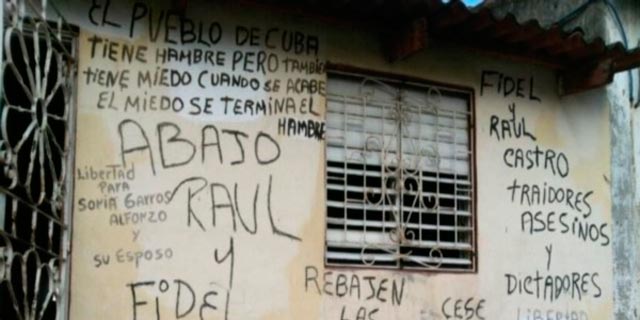 EL PUEBLO DE CUBA
TIENE HAMBRE PERO TAMBIEN
TIENE MIEDO CUANDO SE ACABE
EL MIEDO SE TERMINA EL
HAMBRE
ABAJO
RAUL
y
FiDEL
LiberTaD
PARA
Soria Garros
ALFONZO
y
su Esposo
REBAJEN
LAS
CESE
FiDEL
y
RAUL
CASTRO
TRAIDORES
ASESINOS
y
DICTADORES
LIBERTAD